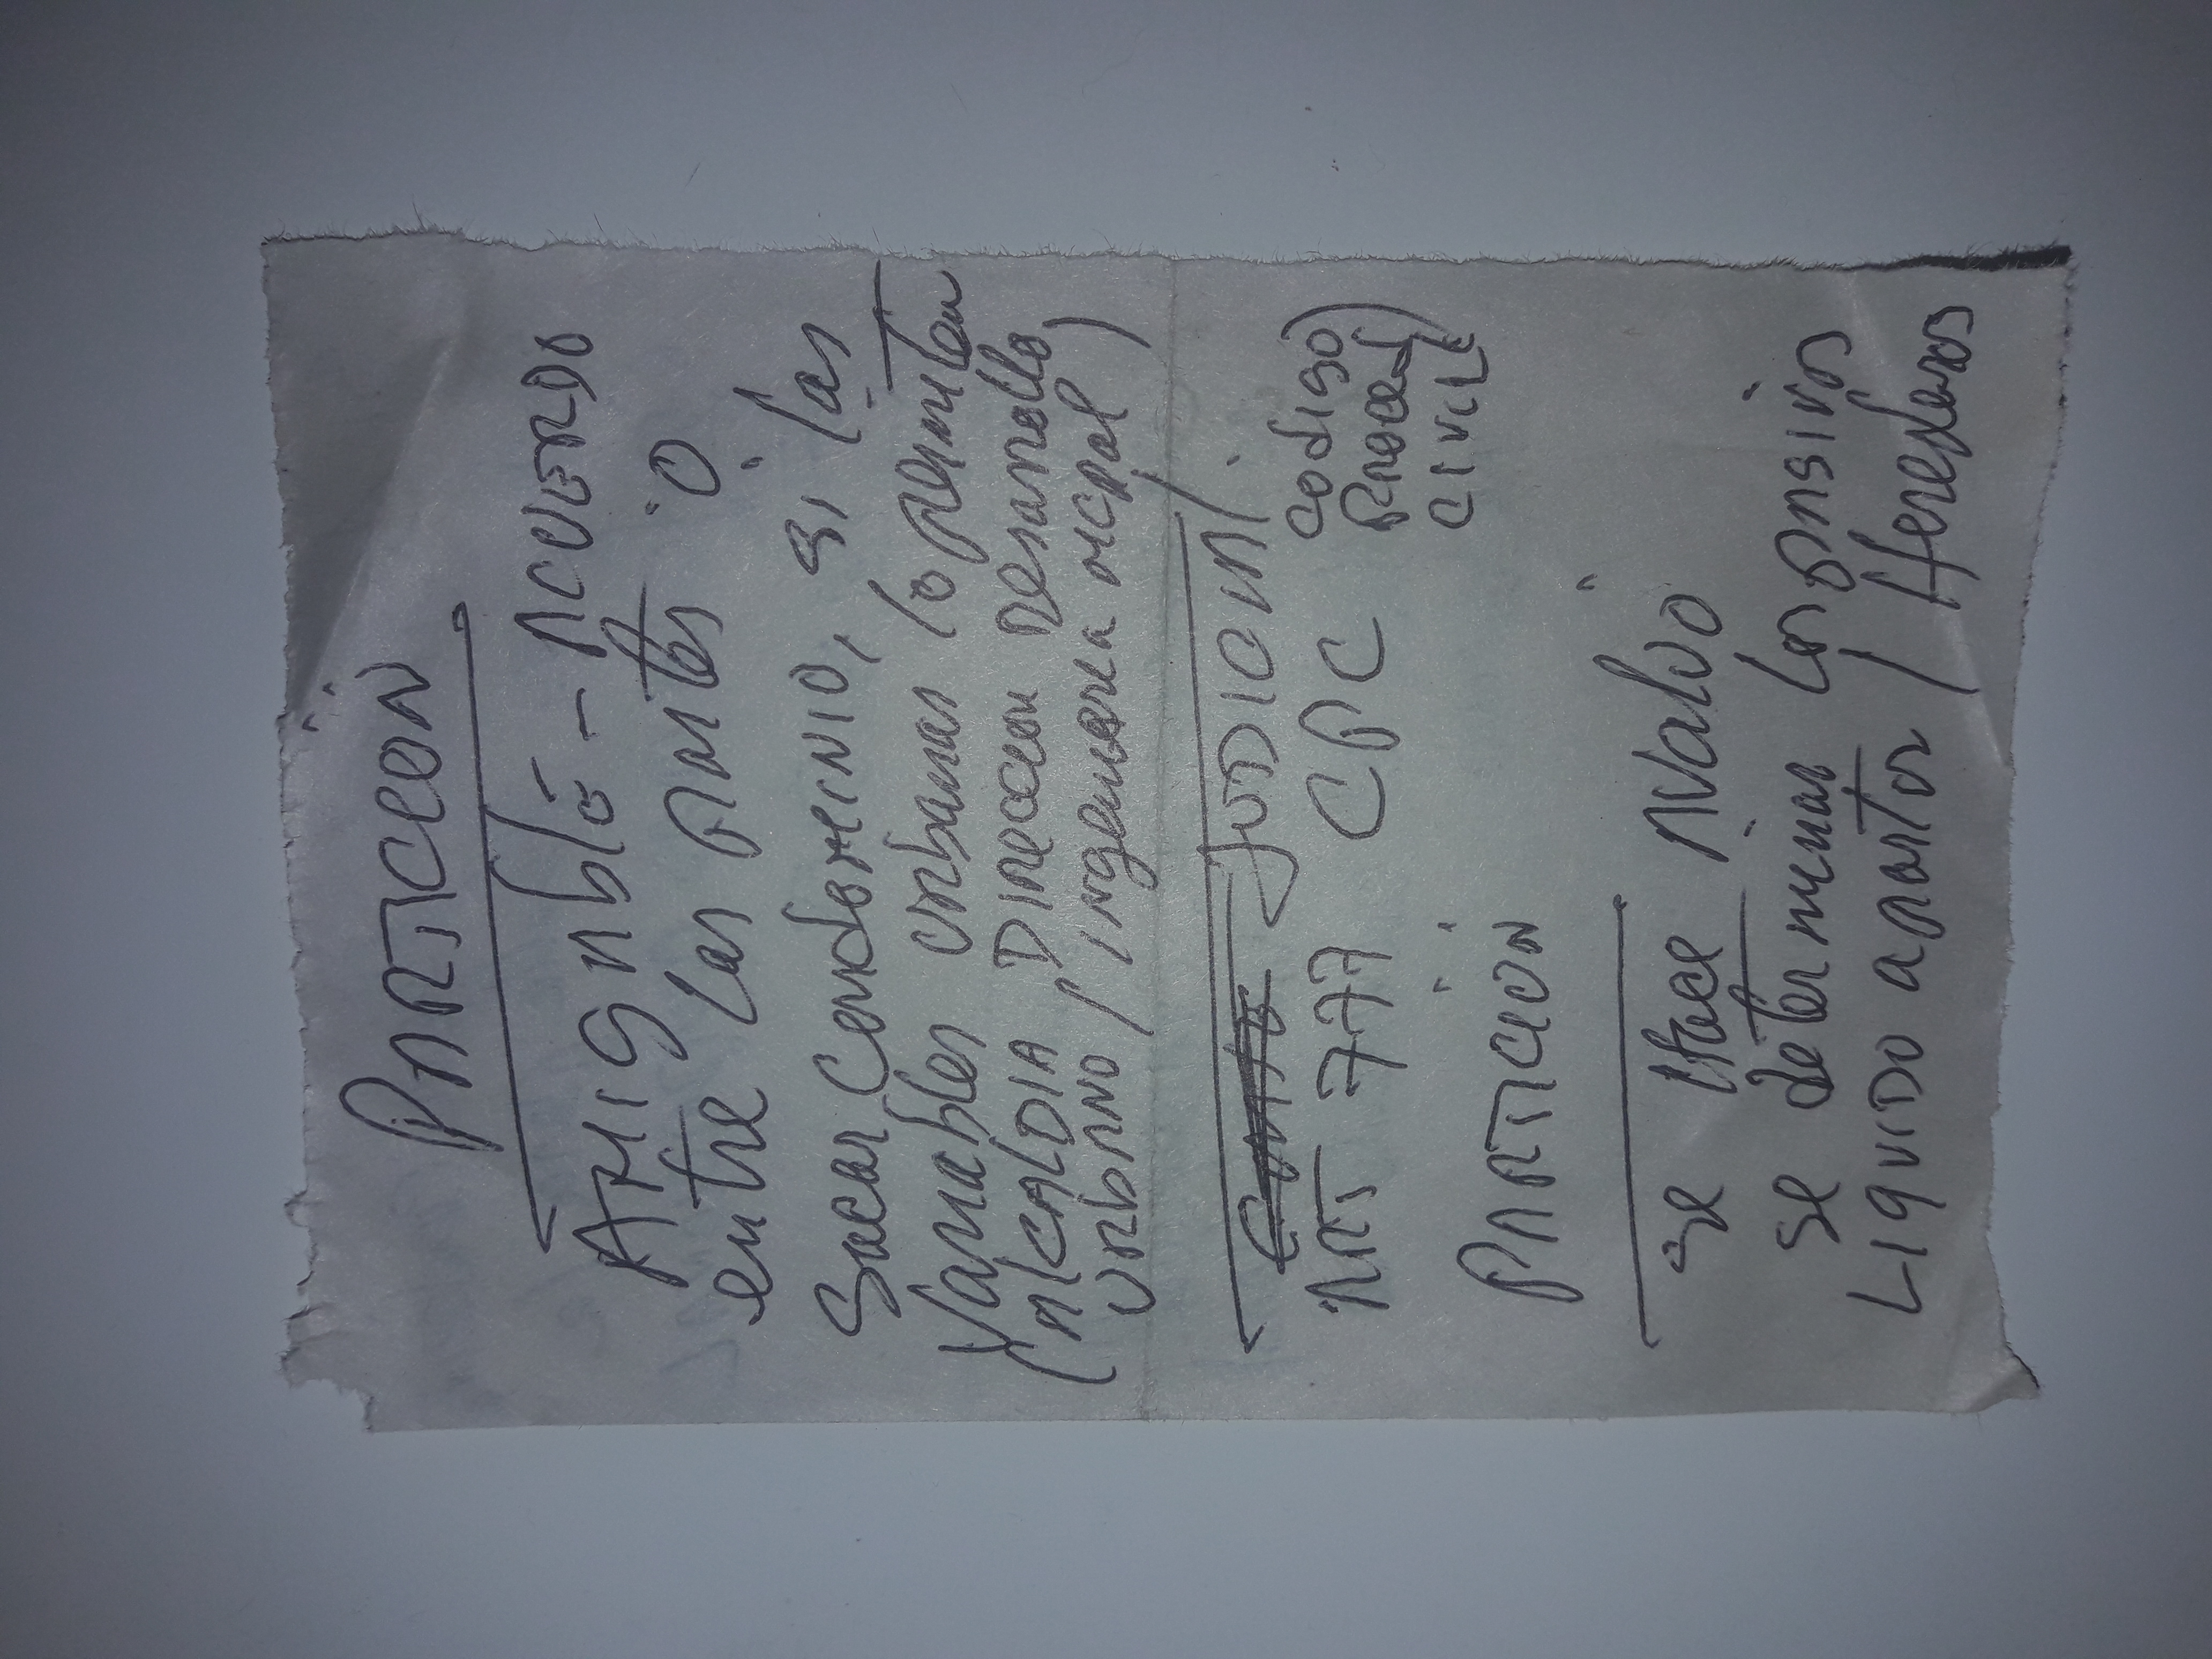 PARTICION
AMIGABLE - ACUERDO
entre las PARTES O
Sacar Condominio, si las
Variables urbanas lo permiten
(ALCALDIA Direccion Desarrollo
URBANO / ingenieria Mcpal)
JUDICIAL
ART 777 CPC Codigo
Proced
CIVIL
PARTICION
se Hace Avaluo
se determinar los pasivos
LIQUIDO a partir / Herederos